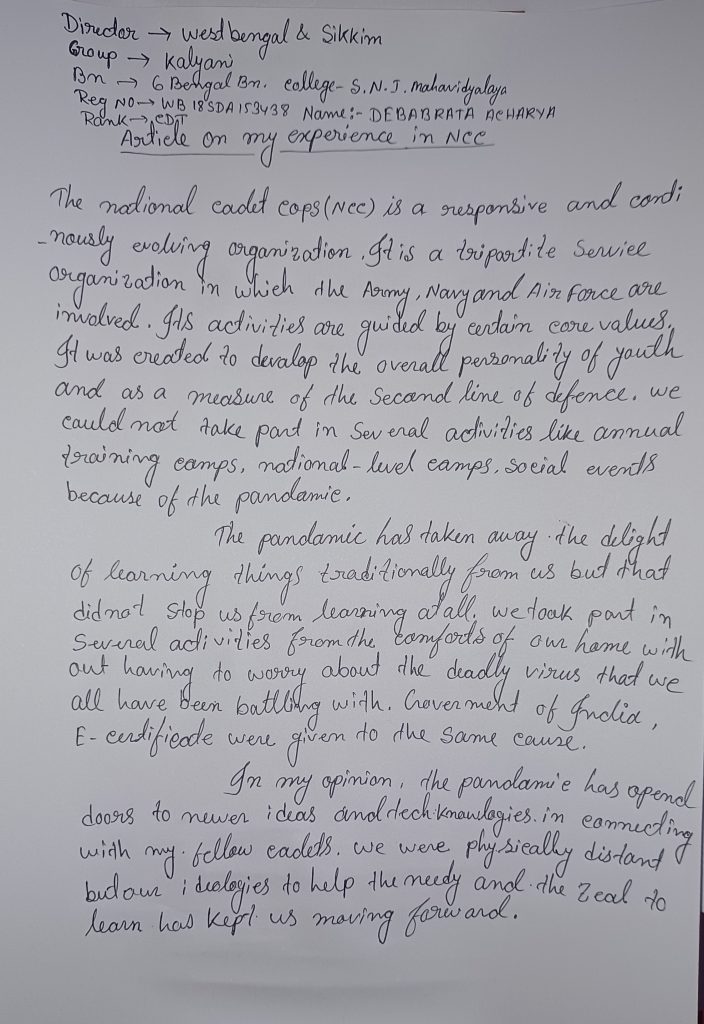 Director → West bengal & Sikkim
Group → Kalyani
Bn → 6 Bengal Bn. college- S.N.J. mahavidyalaya
Reg NO→ WB 18SDA 153438 Name:- DEBABRATA ACHARYA
Rank→ CDT
Article on my experience in Ncc
The national cadet cops (Ncc) is a responsive and conti
-nously evolving organization. It is a tripartite Service
organization in which the Army, Navy and Air Force are
involved. Its activities are guided by certain core values.
It was created to devalop the overall personality of youth
and as a measure of the Second line of defence. we
could not take part in several activities like annual
training camps, national-level camps, social events
because of the pandamic.
The pandamic has taken away the delight
of learning things traditionally from us but that
did not stop us from learning at all. we took part in
Several activities from the comforts of our home with
out having to worry about the deadly virus that we
all have been battling with. Goverment of India,
E-certificate were given to the same cause.
In my opinion, the pandamic has opend
doors to newer ideas and tech-knowlogies. in connecting
with my fellow cadets. we were physically distant
but our ideologies to help the needy and the zeal to
learn has kept us moving forward.